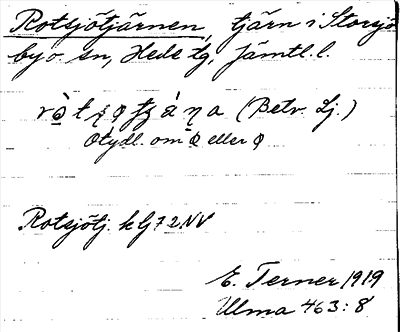 Rotsjötjärnen, tjärn i Storsjö
by o. sn, Hede tg, Jämtl. l.
(Betv. Lj.)
Otydl. om ø̄ eller ø
Rotsjötj. k Gj 7 2 NV
E. Terner 1919
Ulma 463:8